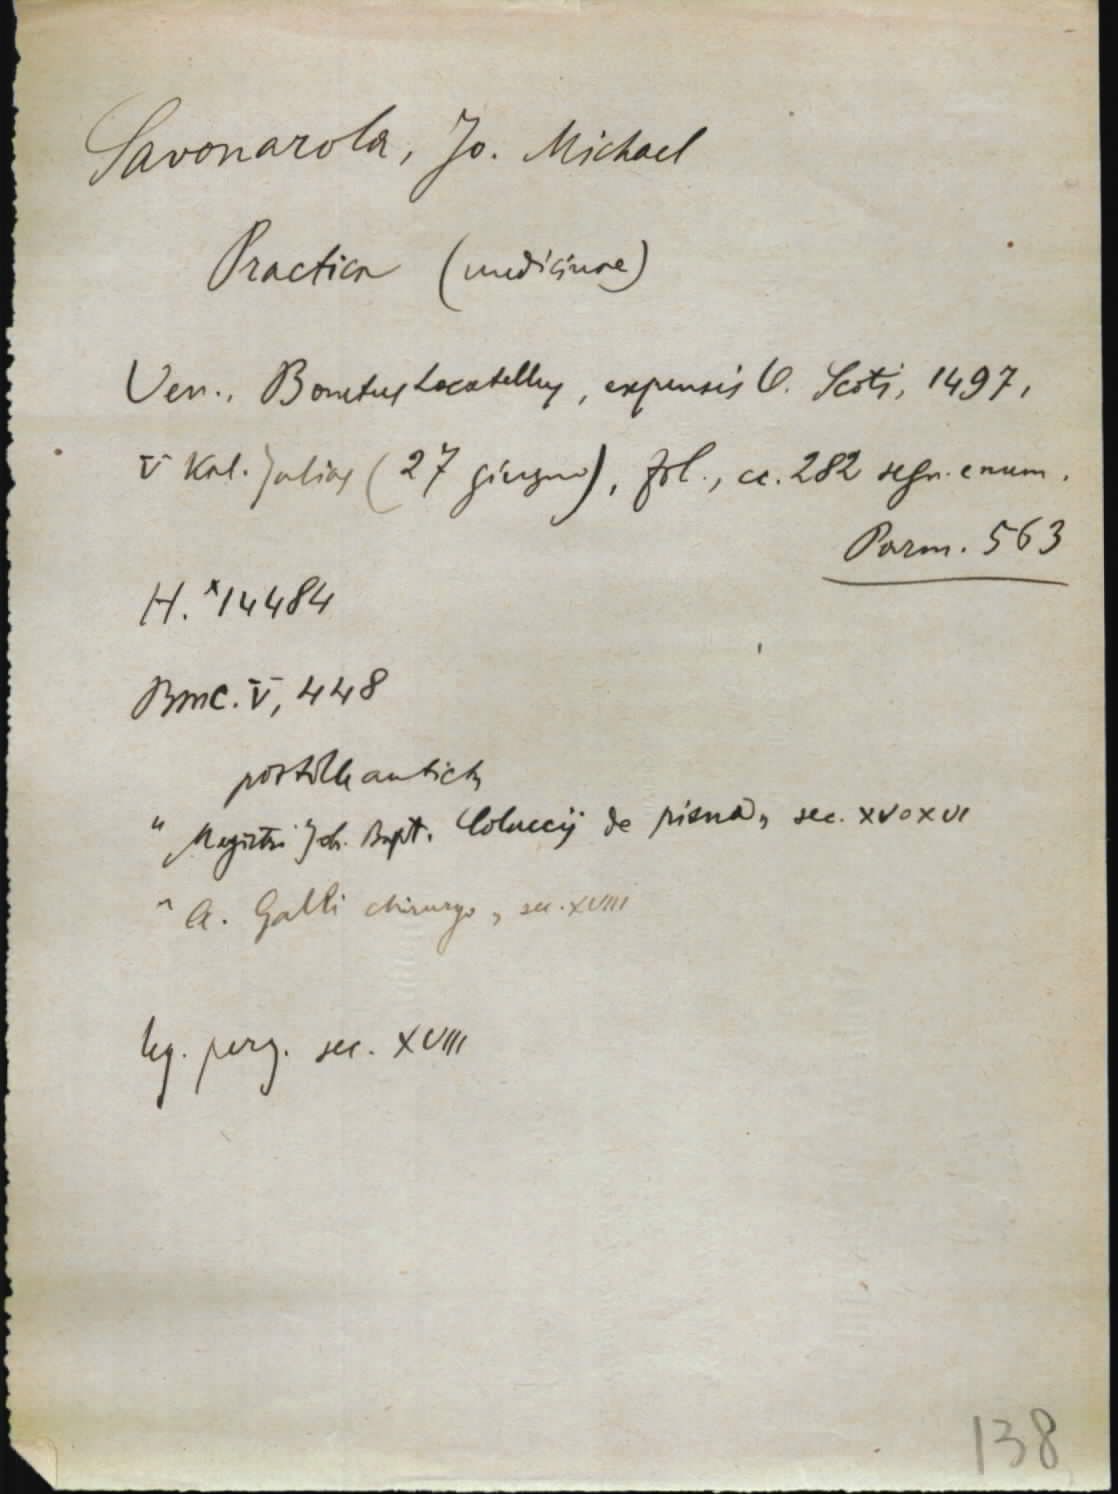 Savonarola, Jo. Michael
Practica (medicinae)
Ven., Bonetus Locatellus, expensis O. Scoti, 1497,
V Kal. Julias (27 giugno), fol., cc. 282 segn. e num.
Parm. 563
H. *14484
BMC. V, 448
postille antiche
" Magistri Joh. Bapt. Coluccij de piena", sec. XV o XVI
" A. Galli chirurgo", sec. XVIII
leg. perg. sec. XVIII
138